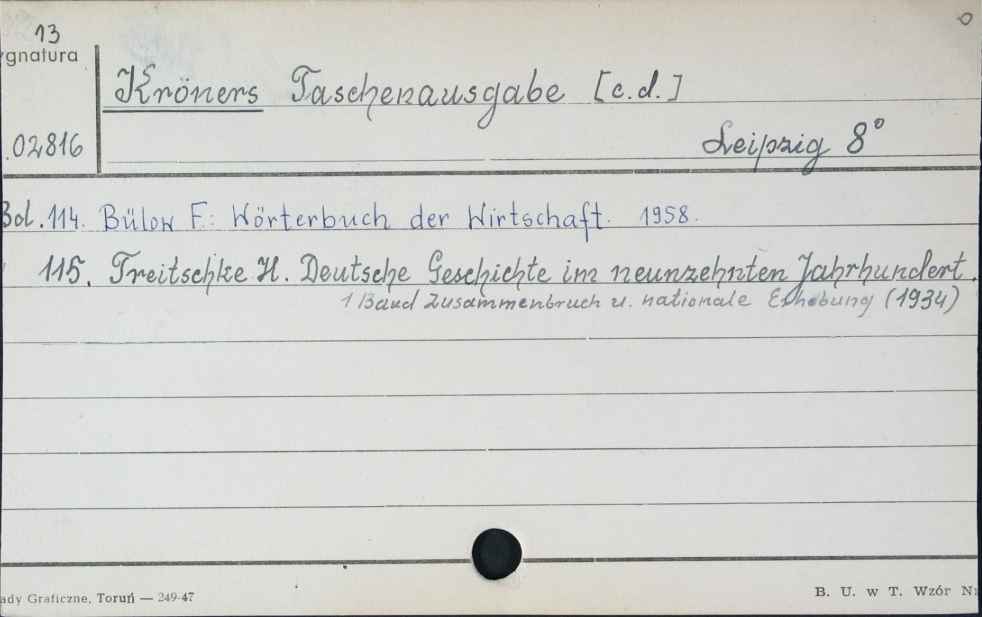 13
ygnatura
Kröners Taschenausgabe [c.d.]
02816
Leipzig 8°
Bol. 114. Bülow F.: Wörterbuch der Wirtschaft. 1958.
115. Treitschke H. Deutsche Geschichte im neunzehnten Jahrhundert.
1 Band Zusammenbruch u. nationale Erhebung (1934)
ady Graficzne, Toruń — 249-47
B. U. w T. Wzór N